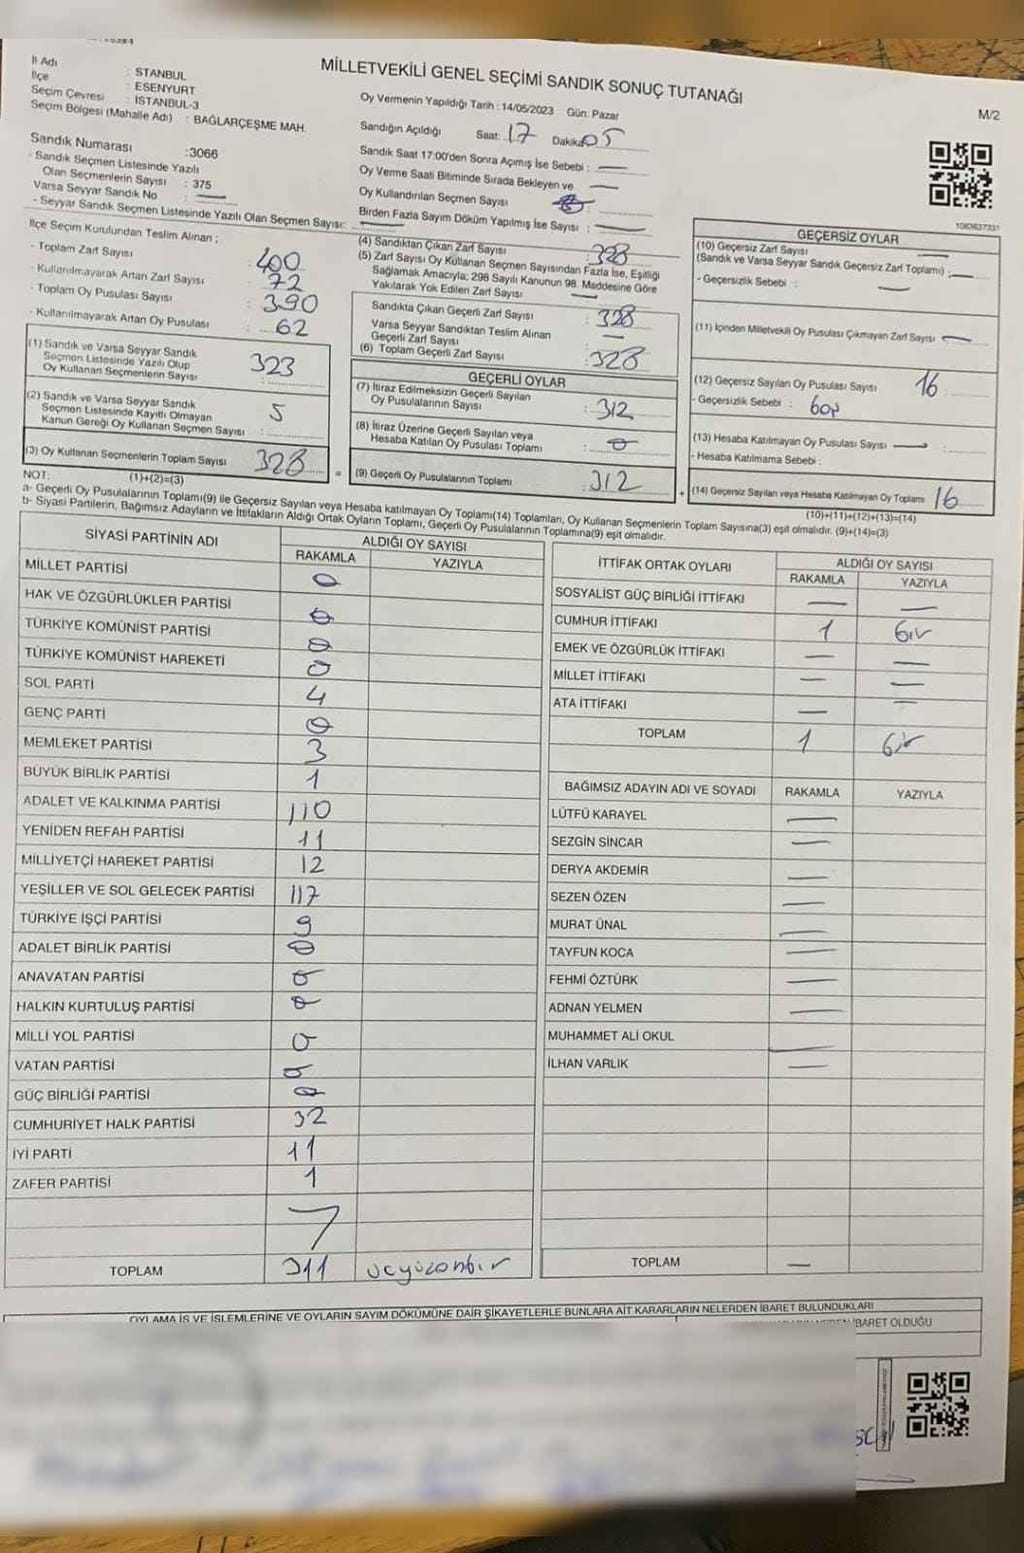 MİLLETVEKİLİ GENEL SEÇİMİ SANDIK SONUÇ TUTANAĞI
M/2
İl Adı : STANBUL
İlçe : ESENYURT
Seçim Çevresi : İSTANBUL-3
Seçim Bölgesi (Mahalle Adı) : BAĞLARÇEŞME MAH.
Sandık Numarası :3066
- Sandık Seçmen Listesinde Yazılı
Olan Seçmenlerin Sayısı : 375
Varsa Seyyar Sandık No : —
- Seyyar Sandık Seçmen Listesinde Yazılı Olan Seçmen Sayısı: —
Oy Vermenin Yapıldığı Tarih : 14/05/2023 Gün: Pazar
Sandığın Açıldığı Saat: 17 Dakika: 05
Sandık Saat 17:00'den Sonra Açımış İse Sebebi : —
Oy Verme Saati Bitiminde Sırada Bekleyen ve —
Oy Kullandırılan Seçmen Sayısı :
Birden Fazla Sayım Döküm Yapılmış İse Sayısı : —
1083637331
İlçe Seçim Kurulundan Teslim Alınan ;
- Toplam Zarf Sayısı : 400
- Kullanılmayarak Artan Zarf Sayısı : 72
- Toplam Oy Pusulası Sayısı : 390
- Kullanılmayarak Artan Oy Pusulası : 62
(1) Sandık ve Varsa Seyyar Sandık
Seçmen Listesinde Yazılı Olup
Oy Kullanan Seçmenlerin Sayısı : 323
(2) Sandık ve Varsa Seyyar Sandık
Seçmen Listesinde Kayıtlı Olmayan
Kanun Gereği Oy Kullanan Seçmen Sayısı : 5
(3) Oy Kullanan Seçmenlerin Toplam Sayısı 328
(1)+(2)=(3)
(4) Sandıktan Çıkan Zarf Sayısı : 328
(5) Zarf Sayısı Oy Kullanan Seçmen Sayısından Fazla İse, Eşitliği
Sağlamak Amacıyla; 298 Sayılı Kanunun 98. Maddesine Göre
Yakılarak Yok Edilen Zarf Sayısı : —
Sandıkta Çıkan Geçerli Zarf Sayısı : 328
Varsa Seyyar Sandıktan Teslim Alınan
Geçerli Zarf Sayısı : —
(6) Toplam Geçerli Zarf Sayısı : 328
GEÇERLİ OYLAR
(7) İtiraz Edilmeksizin Geçerli Sayılan
Oy Pusulalarının Sayısı : 312
(8) İtiraz Üzerine Geçerli Sayılan veya
Hesaba Katılan Oy Pusulası Toplamı : 0
= (9) Geçerli Oy Pusulalarının Toplamı : 312
GEÇERSİZ OYLAR
(10) Geçersiz Zarf Sayısı —
(Sandık ve Varsa Seyyar Sandık Geçersiz Zarf Toplamı) : —
- Geçersizlik Sebebi : —
(11) İçinden Milletvekili Oy Pusulası Çıkmayan Zarf Sayısı : —
(12) Geçersiz Sayılan Oy Pusulası Sayısı : 16
- Geçersizlik Sebebi :
(13) Hesaba Katılmayan Oy Pusulası Sayısı — :
- Hesaba Katılmama Sebebi :
+ (14) Geçersiz Sayılan veya Hesaba Katılmayan Oy Toplamı 16
(10)+(11)+(12)+(13)=(14)
NOT:
a- Geçerli Oy Pusulalarının Toplamı(9) ile Geçersiz Sayılan veya Hesaba katılmayan Oy Toplamı(14) Toplamları, Oy Kullanan Seçmenlerin Toplam Sayısına(3) eşit olmalıdır. (9)+(14)=(3)
b- Siyasi Partilerin, Bağımsız Adayların ve İttifakların Aldığı Ortak Oyların Toplamı, Geçerli Oy Pusulalarının Toplamına(9) eşit olmalıdır.
SİYASİ PARTİNİN ADI ALDIĞI OY SAYISI
RAKAMLA YAZIYLA
MİLLET PARTİSİ 0
HAK VE ÖZGÜRLÜKLER PARTİSİ 0
TÜRKİYE KOMÜNİST PARTİSİ 0
TÜRKİYE KOMÜNİST HAREKETİ 0
SOL PARTİ 4
GENÇ PARTİ 0
MEMLEKET PARTİSİ 3
BÜYÜK BİRLİK PARTİSİ 1
ADALET VE KALKINMA PARTİSİ 110
YENİDEN REFAH PARTİSİ 11
MİLLİYETÇİ HAREKET PARTİSİ 12
YEŞİLLER VE SOL GELECEK PARTİSİ 117
TÜRKİYE İŞÇİ PARTİSİ 9
ADALET BİRLİK PARTİSİ 0
ANAVATAN PARTİSİ 0
HALKIN KURTULUŞ PARTİSİ 0
MİLLİ YOL PARTİSİ 0
VATAN PARTİSİ 0
GÜÇ BİRLİĞİ PARTİSİ 0
CUMHURİYET HALK PARTİSİ 32
İYİ PARTİ 11
ZAFER PARTİSİ 1
TOPLAM 311 üçyüzonbir
İTTİFAK ORTAK OYLARI ALDIĞI OY SAYISI
RAKAMLA YAZIYLA
SOSYALİST GÜÇ BİRLİĞİ İTTİFAKI — —
CUMHUR İTTİFAKI 1 bir
EMEK VE ÖZGÜRLÜK İTTİFAKI — —
MİLLET İTTİFAKI — —
ATA İTTİFAKI — —
TOPLAM 1 bir
BAĞIMSIZ ADAYIN ADI VE SOYADI RAKAMLA YAZIYLA
LÜTFÜ KARAYEL —
SEZGİN SİNCAR —
DERYA AKDEMİR —
SEZEN ÖZEN —
MURAT ÜNAL —
TAYFUN KOCA —
FEHMİ ÖZTÜRK —
ADNAN YELMEN —
MUHAMMET ALİ OKUL —
İLHAN VARLIK —
TOPLAM —
OYLAMA İŞ VE İŞLEMLERİNE VE OYLARIN SAYIM DÖKÜMÜNE DAİR ŞİKAYETLERLE BUNLARA AİT KARARLARIN NELERDEN İBARET BULUNDUKLARI
İBARET OLDUĞU